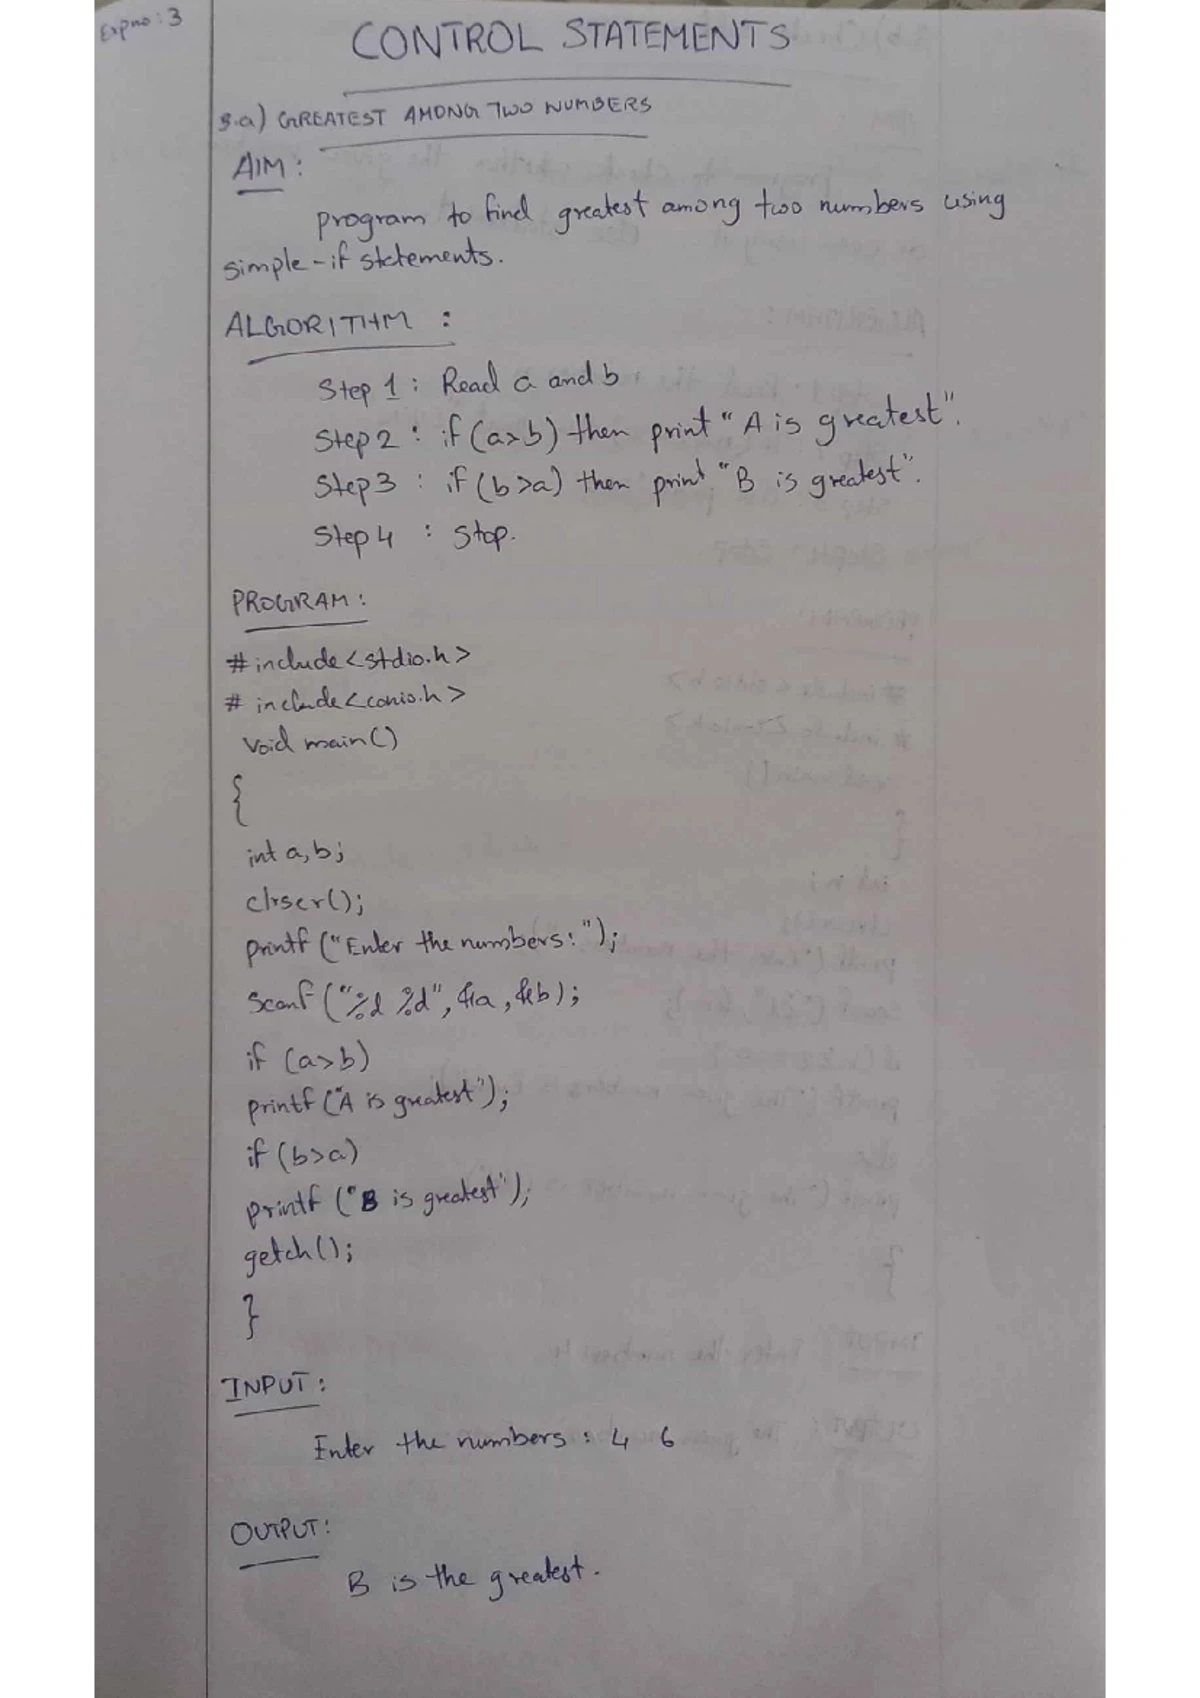 Expno: 3
CONTROL STATEMENTS
3.a) GREATEST AMONG TWO NUMBERS
AIM:
program to find greatest among two numbers using
simple-if statements.
ALGORITHM :
Step 1 : Read a and b
Step 2 : if (a>b) then print "A is greatest".
Step 3 : if (b>a) then print "B is greatest".
Step 4 : Stop.
PROGRAM:
#include<stdio.h>
# include<conio.h>
void main()
{
int a,b;
clrscr();
printf ("Enter the numbers:");
scanf ("%d %d", &a, &b);
if (a>b)
printf ("A is greatest");
if (b>a)
printf ("B is greatest");
getch();
}
INPUT:
Enter the numbers : 4 6
OUTPUT:
B is the greatest.